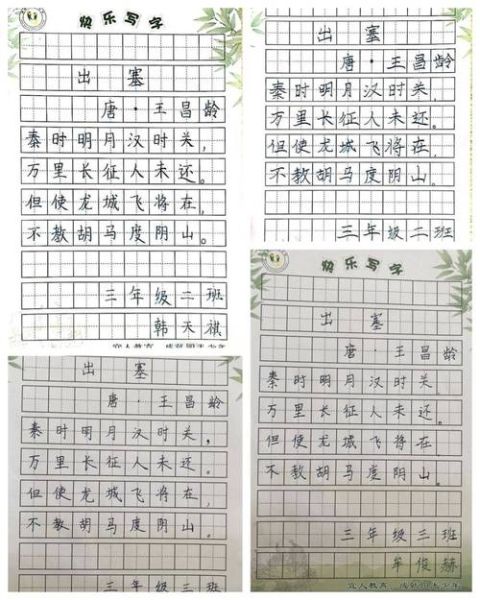 快乐写字
出 塞
唐·王昌龄
秦时明月汉时关,
万里长征人未还。
但使龙城飞将在,
不教胡马度阴山。
三年级二班
韩天祺
宜人教育 成就明天少年
出 塞
唐·王昌龄
秦时明月汉时关,
万里长征人未还。
但使龙城飞将在,
不教胡马度阴山。
三年级二班
出 塞
唐·王昌龄
秦时明月汉时关,
万里长征人未还。
但使龙城飞将在,
不教胡马度阴山。
三年级三班
快乐写字
出 塞
唐·王昌龄
秦时明月汉时关
万里长征人未还。
但使龙城飞将在
不教胡马度阴山。
三年级三班
牟俊赫
宜人教育